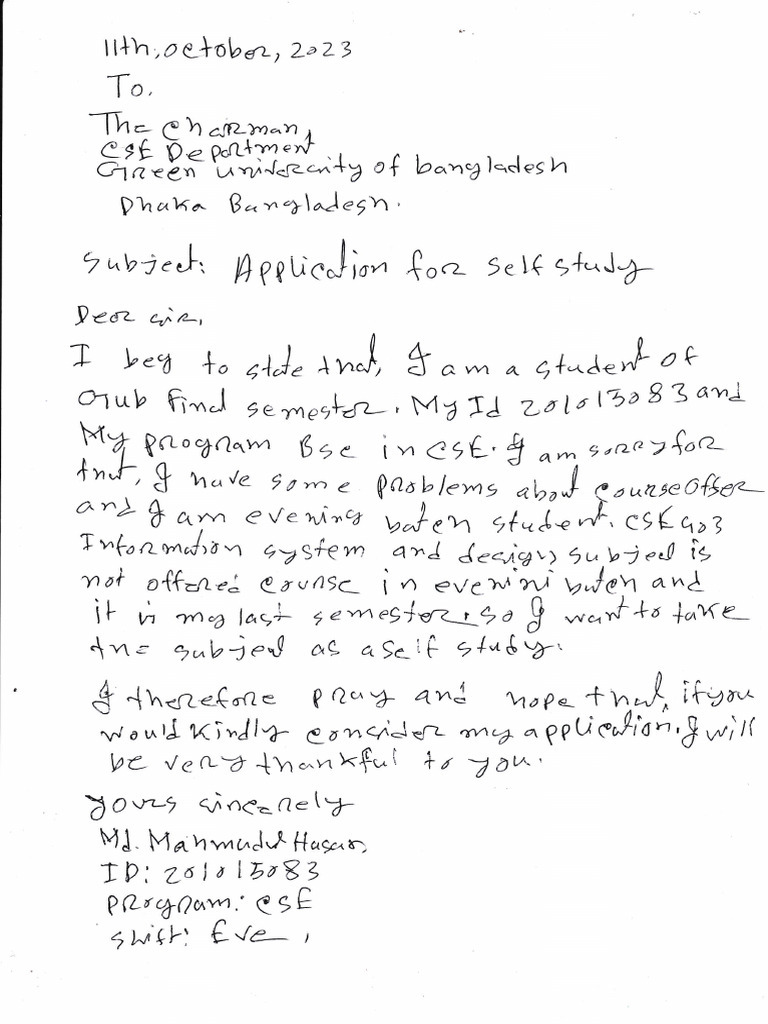 11th, october, 2023
To.
The Chairman,
CSE Department
Green University of bangladesh
Dhaka Bangladesh.
Subject: Application for self study
Dear sir,
I beg to state that, I am a student of
Gub final semester. My Id 201015083 and
My program Bsc in CSE. I am sorry for
that, I have some problems about course offer
and I am evening batch student. CSE 403
Information system and design, subject is
not offered course in evenini batch and
it is my last semester. so I want to take
the subject as a self study.
I therefore pray and hope that, if you
would kindly consider my application. I will
be very thankful to you.
yours sincerely
Md. Mahmudul Hasan,
ID: 201015083
program: CSE
shift: Eve,